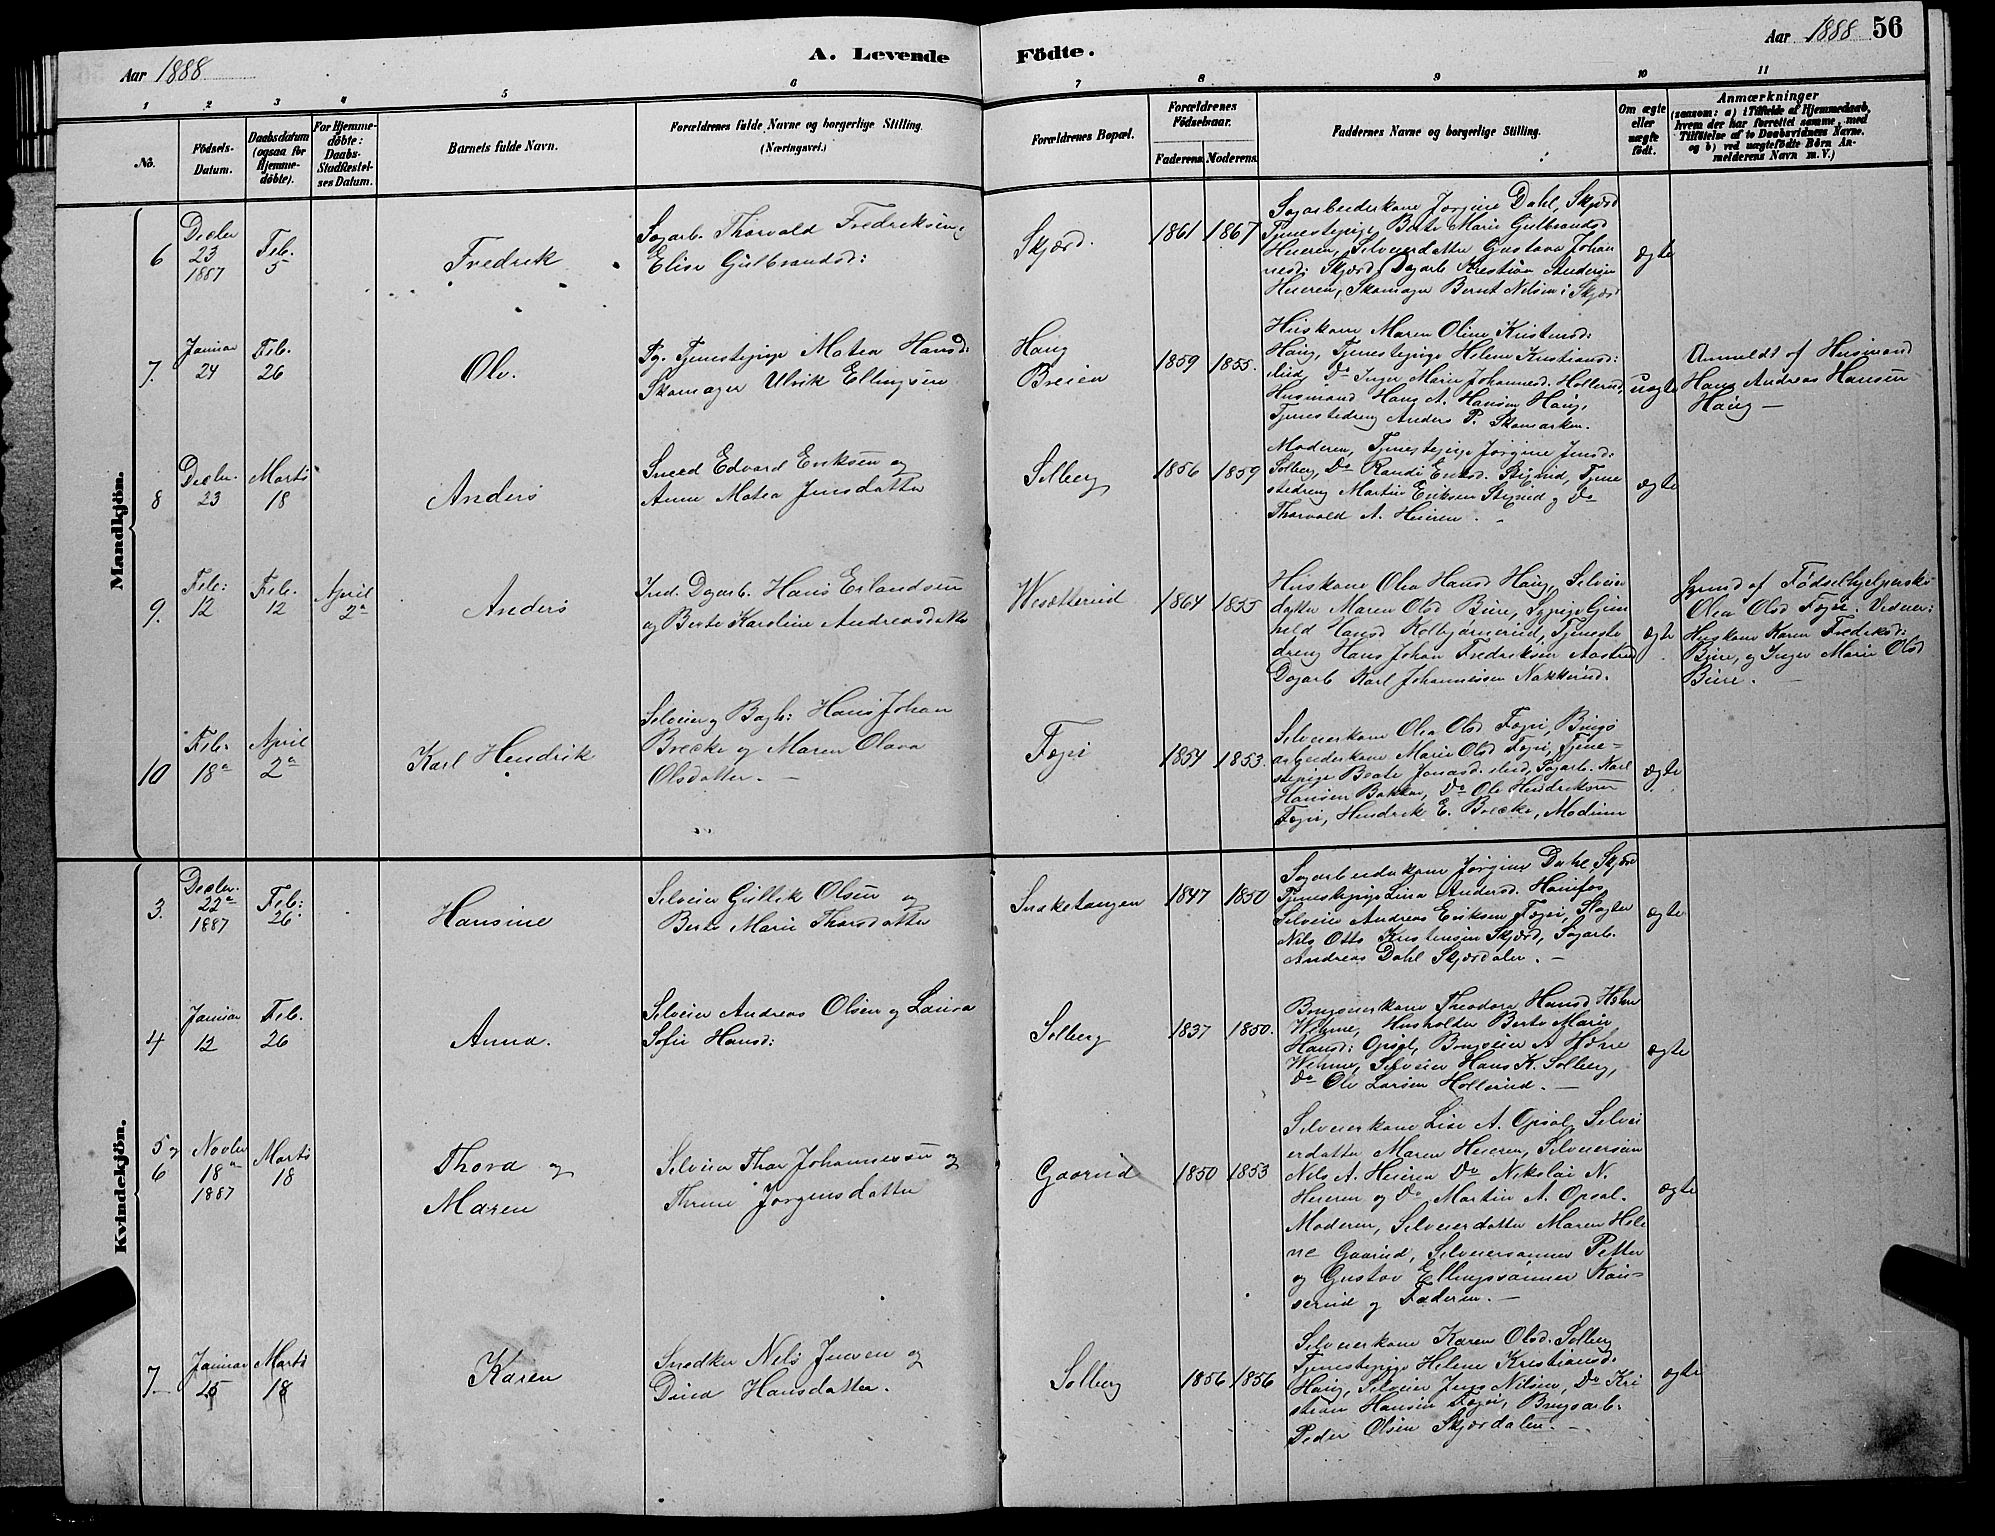 Aar 1888
A. Levende
Födte.
Aar 1888 56
1 2 3 4 5 6 7 8 9 10 11
No.
Födsels-
Datum.
Daabsdatum
(ogsaa for
Hjemme-
döbte).
For Hjemme-
döbte:
Daabs-
Barnets fulde Navn.
Forældrenes fulde Navne og borgerlige Stilling.
(Næringsvei.)
Forældrenes Bopæl.
Forældrenes
Födselsaar.
Faderens Moderens
Faddernes Navne og borgerlige Stilling.
Om ægte
eller
uægte
födt.
Anmærkninger
(saasom: a) i Tilfælde af Hjemmedaab,
hvem der har forrettet samme, med
Tilföielse af to Daabsvidners Navne,
og b) ved uægtefödte Börn An-
melderens Navn m. V.)
Mandkjön.
6
Decbr
23
1887
Feb.
5
Fredrik
Sagarb. Thorvald Fredriksen
Elise Gulbrandsd:
Skjærd.
1861 1867
Sagarbeiderkone Jørgine Dahl Skjærd
Tjenestepige Berte Marie Gulbrandsd
Heieren, Selveierdatter Gustava Johan
nesd: Skjærd, Dagarb Kristian Andersen
Heieren, Skomager Bernt Nilsen Skjærd
ægte
7.
Januar
24
Feb.
26
Ole.
Pg. Tjenestepige Matea Hansd:
Skomager Ulrik Ellingsen
Haug
Breien
1859 1855.
Huskone Maren Oline Kristensd:
Haug, Tjenestepige Helene Kristiansd:
Do Inger Marie Johannesd. Hollerud,
Husmand Hans A. Hansen Haug,
Tjenestedreng Anders P. Skomarken.
uægte
Anmeldt af Husmand
Hans Andreas Hansen
Haug —
8
Decbr.
23
Marts
18
Anders
Smed Edvard Eriksen og
Anne Matea Jensdatter
Solberg
1856 1859
Moderen, Tjenestepige Jørgine Jensd:
Solberg, Do Randi Eriksd. Tjene
stedreng Martin Eriksen og Do
Thorvald A. Heieren.
ægte
9.
Feb:
12
Feb.
12
April
2a
Anders
Ind. Dagarb. Hans Erlandsen
og Berte Karoline Andreasdatter
1864 1855
Huskone Olea Hansd Haug, Selveier
datter Maren Olsd Bure, Sypige Gun
hild Hansd Kolbjørnerud, Tjeneste
dreng Hans Johan Fredriksen Aasterud
Dagarb Karl Johannessen Nakkerud.
ægte
af Födselhjelperske
Olea Olsd Fegri. Vidner:
Huskone Karen Fredriksd:
Bure, og Inger Marie Olsd
Bure. —
10
Feb.
18a
April
2a
Karl Hendrik
Selveier og Bagh: Hans Johan
Brecke og Maren Olava
Olsdatter. —
Fegri
1854 1853.
Selveierkone Olea Olsd Fegri, Brugs
arbeiderkone Marie Olsd Fegri, Tjene-
stepige Beate Jonasd. Sagarb. Karl
Hansen Bakken, Do Ole Hendriksen
Fegri, Hendrik E. Brecke, Modum
ægte
Kvindekjön.
3.
Decbr.
22a
1887
Feb:
26
Hansine
Selveier Gullik Olsen og
Berte Marie Thorsdatter
Snaketangen
1847 1850
Sagarbeiderkone Jørgine Dahl, Skjærd
Tjenestepige Lina Andersd. Hønefos
Selveier Andreas Eriksen Fegri, Slagter
Nils Otto Kristensen Skjærd, Sagarb.
Andreas Dahl Skjærdalen. —
ægte
4
Januar
12
Feb.
26
Anna.
Selveier Andreas Olsen og Laura
Sofie Hansd:
Solberg
1837 1850.
Brugseierkone Theodora Hansd
Husholder Berte Marie
Hansd: Opsal, Brugseier A
Selveier Hans K. Solberg,
Do Ole Larsen Hollerud. —
ægte
5 og
6
Novbr
18a
1887
Marts
18
Thora og
Maren
Selveier Thor Johannessen og
Jørgensdatter
Gaarud
1850 1853
Selveierkone Lise A. Opsal, Selvei
erdatter Maren Heieren, Selveiersøn
Nils A. Heieren Do Nikolai N.
Heieren og Do Martin A. Opsal.
Moderen, Selveierdatter Maren Hele
ne Gaarud, Selveiersønner Petter
og Gustav Ellingssønner Kau-
serud og Faderen. —
ægte
7
Januar
25
Marts
18
Karen
Snedker Nils Jensen og
Dina Hansdatter.
Solberg
1856 1856
Selveierkone Karen Olsd. Solberg
Tjenestepige Helene Kristiansd.
Haug, Selveier Jens Nilsen, Do Kri
stian Hansen Fegri, Brugsarb.
Peder Olsen Skjærdalen. —
ægte